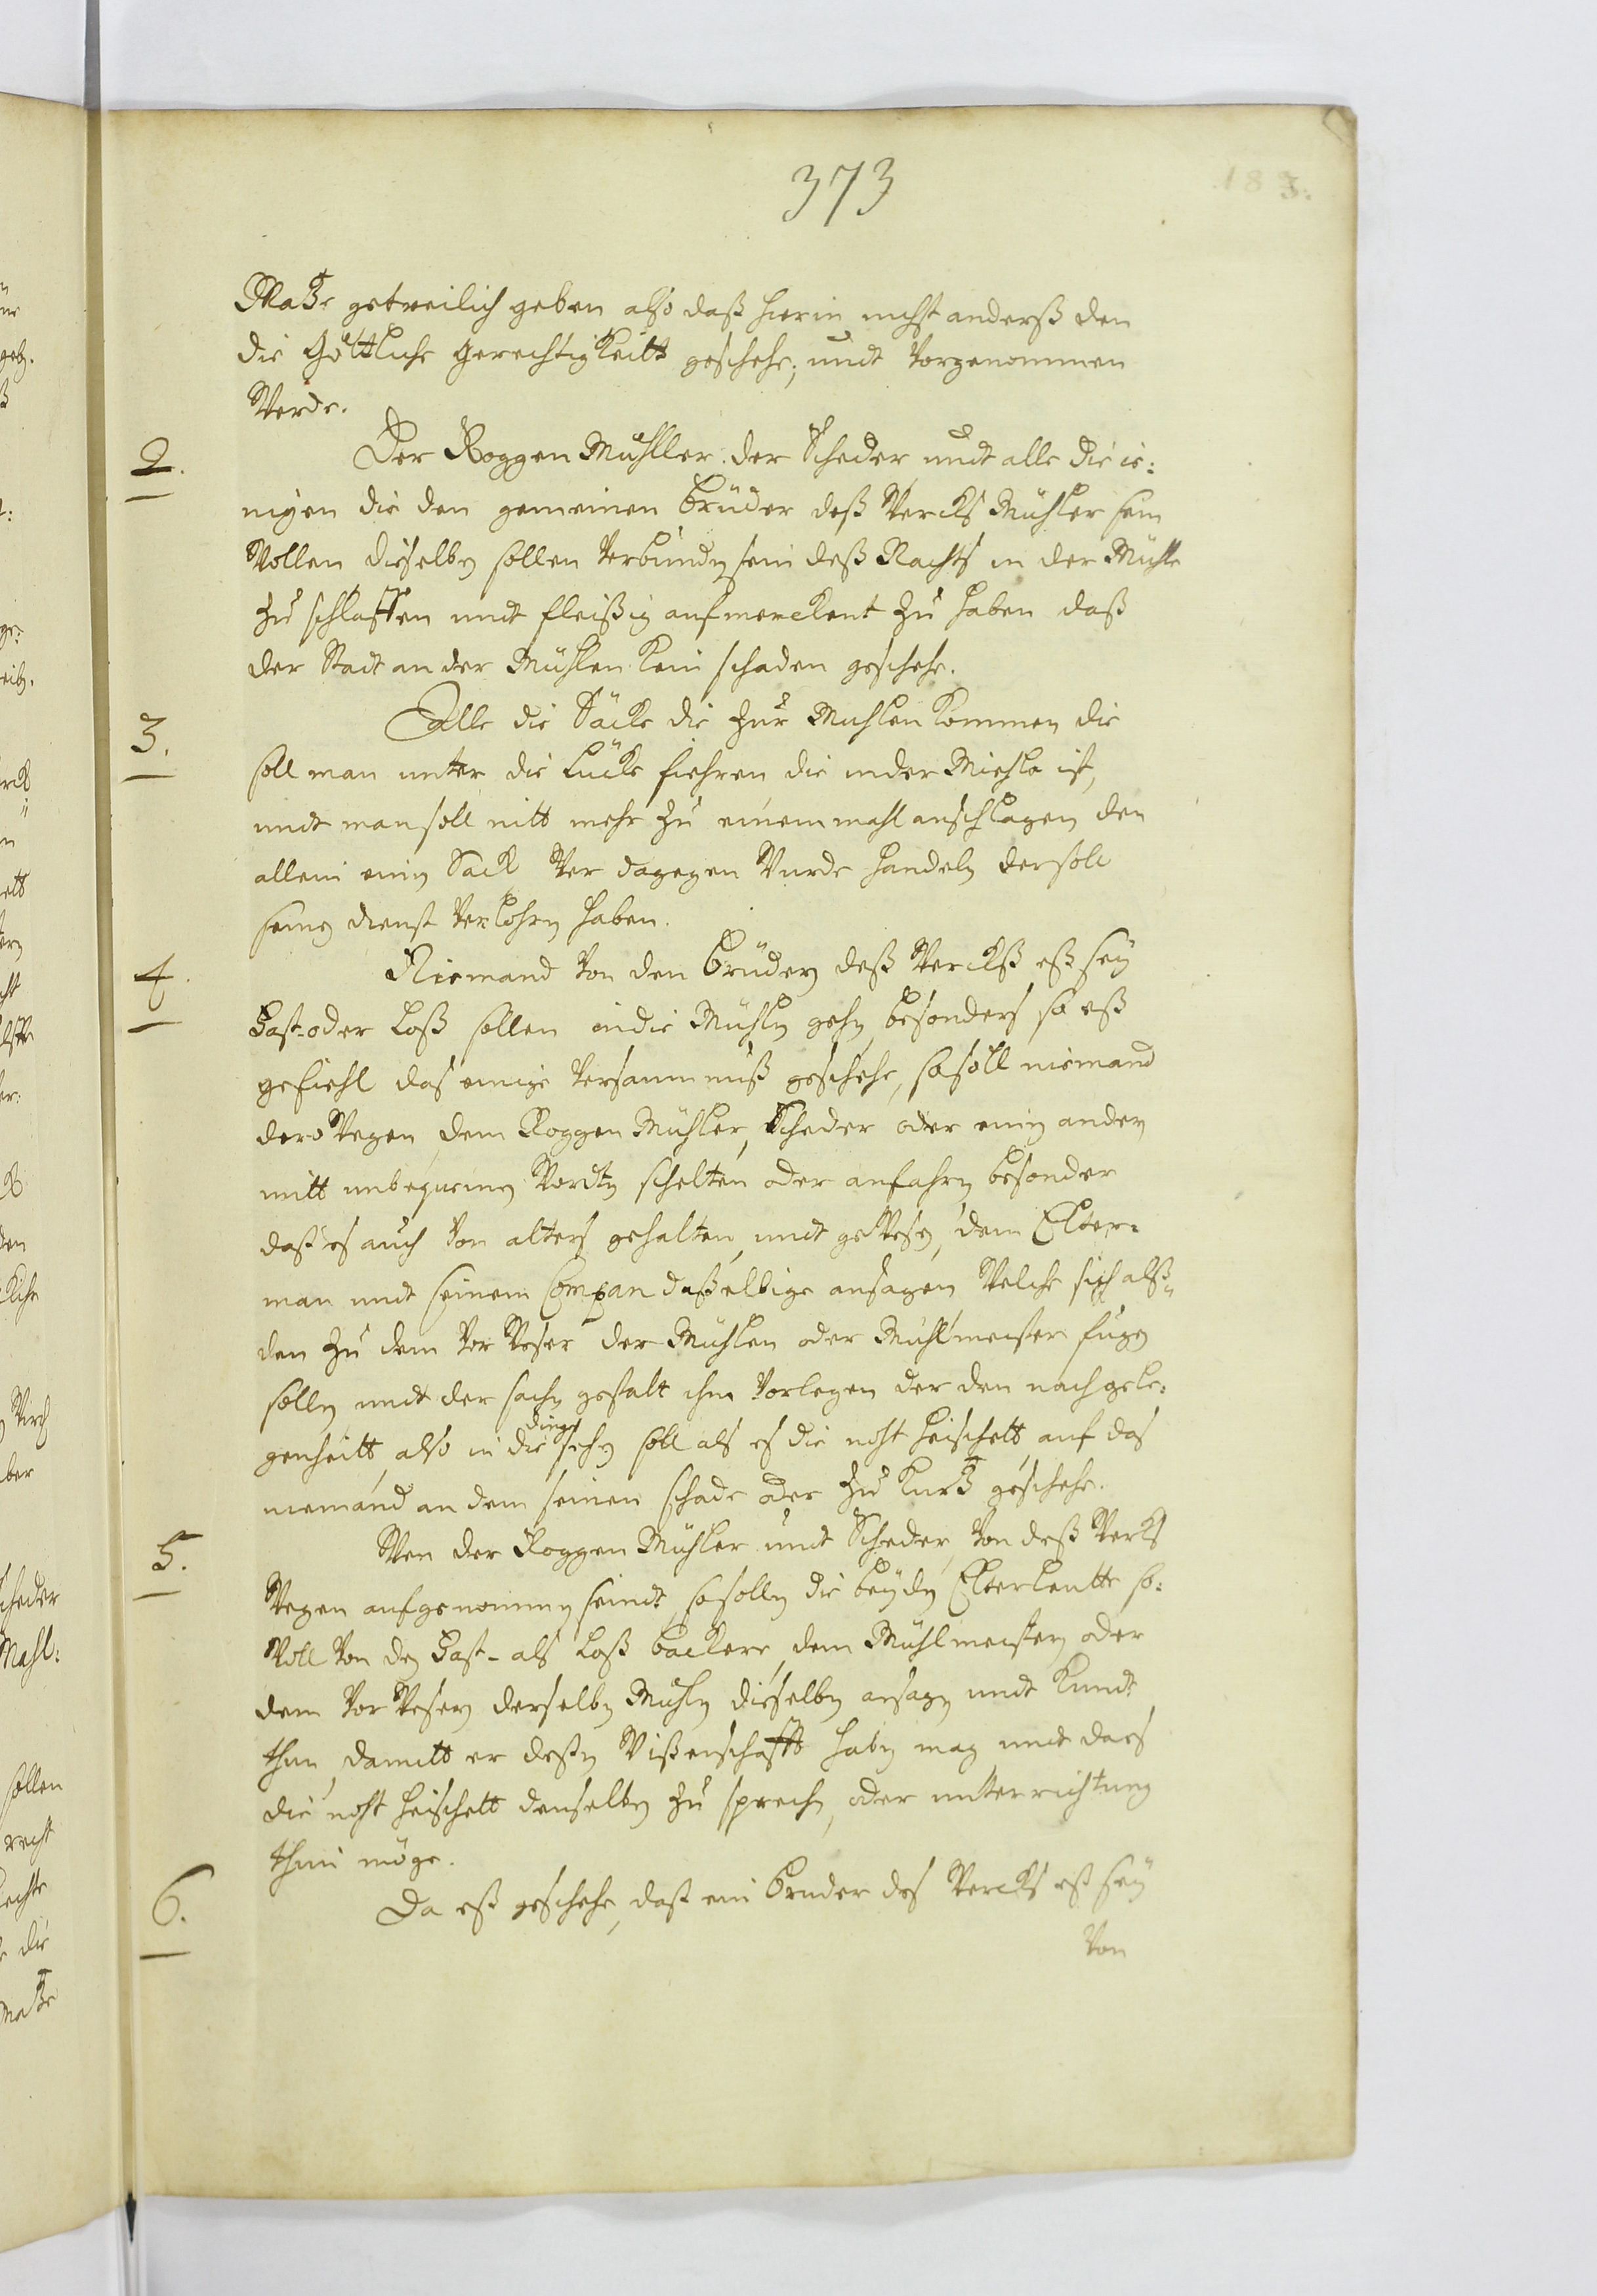 373
183.
Matze getreilich geben also daß hierin nichst anderß den
die Göttliche Gerechtigkeitt geschehe; undt vorgenommen
Werde.
2. Der Roggen Mühller der Scheder undt alle die ie:
nigen die den gemeinen brüder deß Wercks Mühler sein
Wollen dieselben sollen verbunden sein deß Nachts in der Mühle
zu schlaffen undt fleißig aufmerckent zu haben daß
der Stadt an der Mühlen kein schaden geschehe.
3. Alle die Säcke die zur Muhlen kommen die
soll man unter die Lücke fiehren die in der Miehle ist,
undt man soll nitt mehr zu einem mahl anschlagen den
allein einen Sack Wer dagegen Wurde handeln der soll
seinen dienst verlohren haben.
4. Niemand von den brüdern deß Werckß eß sey
Fast oder Loß sollen in die Mühlen gehn besonders so eß
gefiehl das einige versaumnuß geschehe, so soll niemand
dero Wegen dem Roggen Mühler, Scheder oder einen andern
mitt unbequemen Wordten schelten oder anfahren besonder
daß es auch von alters gehalten undt geWesen, dem Elter:
man undt seinem Compan daßelbige ansagen Welche sich alß„
den zu dem vorWeser der Mühlen oder Mühlmeister fügen
sollen undt der sachen gestalt ihm vorlegen der den nach gele:
genheitt also in die dinge sehen soll als es die noht heischett auf das
niemand an dem seinen schade oder zu kurtz geschehe.
5. Wen der Roggen Mühler undt Scheder von deß Wercks
Wegen aufgenommen seindt, so sollen die beyden Elterleutte so:
Woll von den Fast- als Loß backere dem Mühlmeistern oder
dem vorWesern derselben Muhlen dieselben ansagen undt kundt
thun damitt er deßen Wißenschafft haben mag undt da es
die noht heischett denselben zu sprechen, oder unterrichtung
thun möge.
6. Da eß geschehe, daß ein bruder des Wercks eß sey
von